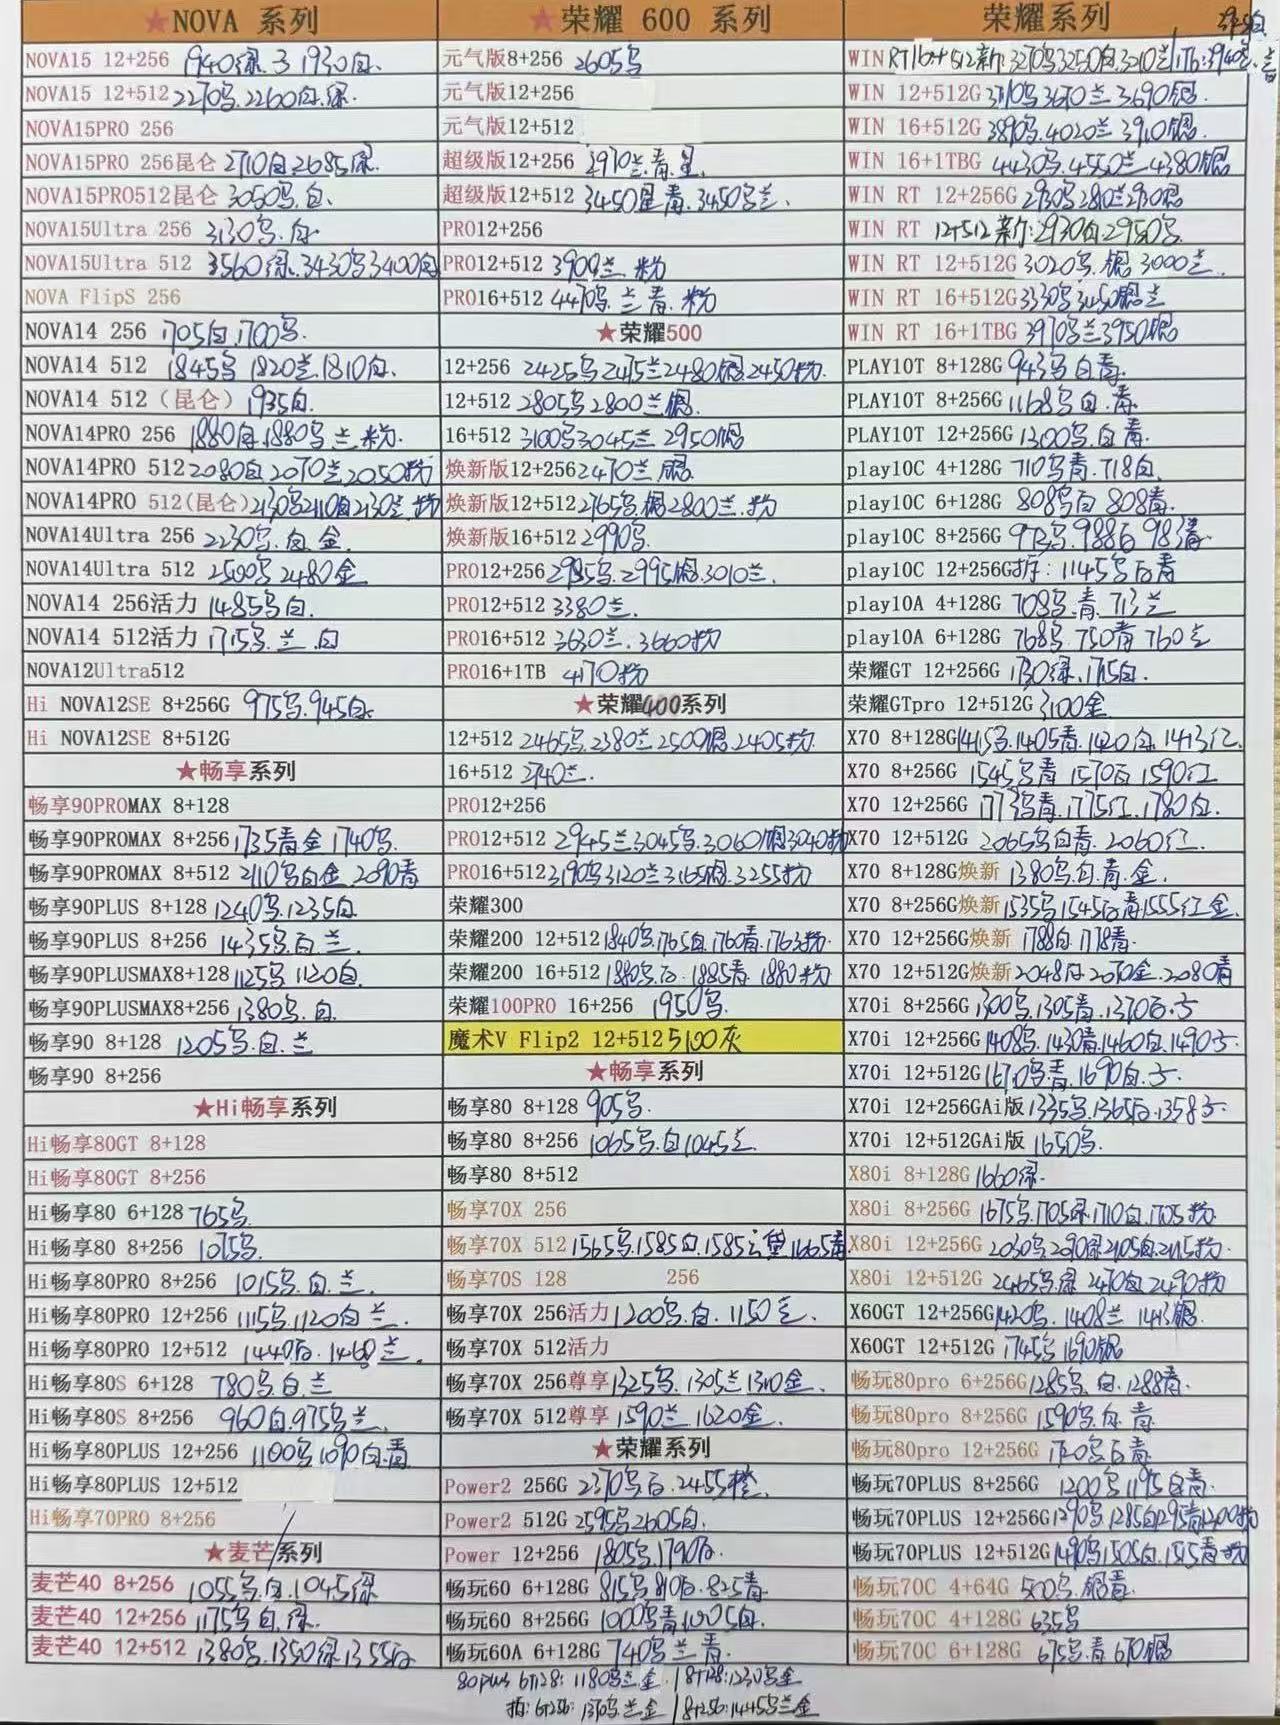 ★NOVA 系列
NOVA15 12+256 1940绿.  1930白.
NOVA15 12+512 2270乌.2260白.绿.
NOVA15PRO 256
NOVA15PRO 256昆仑 2710白2685绿.
NOVA15PRO512昆仑 3050乌.白.
NOVA15Ultra 256 3130乌.白.
NOVA15Ultra 512 3560绿.3430乌3400白
NOVA FlipS 256
NOVA14 256 1705白.1700乌.
NOVA14 512 1845乌 1820兰.1810白.
NOVA14 512（昆仑）1935白.
NOVA14PRO 256 1880白.1880乌 兰 粉.
NOVA14PRO 512 2080白2070兰2050粉
NOVA14PRO 512(昆仑)2130乌2110白2130兰.粉
NOVA14Ultra 256 2230乌.白.金.
NOVA14Ultra 512 2500乌2480金
NOVA14 256活力 1485乌白.
NOVA14 512活力 1715乌.兰.白
NOVA12Ultra512
Hi NOVA12SE 8+256G 975乌.945白.
Hi NOVA12SE 8+512G
★畅享系列
畅享90PROMAX 8+128
畅享90PROMAX 8+256 1735青金 1740乌.
畅享90PROMAX 8+512 2110乌白金.2090青
畅享90PLUS 8+128 1240乌.1235白.
畅享90PLUS 8+256 1435乌.白.兰.
畅享90PLUSMAX8+128 1125乌 1120白.
畅享90PLUSMAX8+256 1380乌.白.
畅享90 8+128 1205乌.白.兰
畅享90 8+256
★Hi畅享系列
Hi畅享80GT 8+128
Hi畅享80GT 8+256
Hi畅享80 6+128 765乌.
Hi畅享80 8+256 1075乌.
Hi畅享80PRO 8+256 1015乌.白.兰.
Hi畅享80PRO 12+256 1115乌.1120白 兰.
Hi畅享80PRO 12+512 1440白.1460兰.
Hi畅享80S 6+128 780乌.白.兰
Hi畅享80S 8+256 960白.975乌兰.
Hi畅享80PLUS 12+256 1100乌1090白.青
Hi畅享80PLUS 12+512
Hi畅享70PRO 8+256
★麦芒系列
麦芒40 8+256 1055乌.白.1045绿
麦芒40 12+256 1175乌.白.绿.
麦芒40 12+512 1380乌.1350绿1355白
★荣耀 600 系列
元气版8+256 2605乌
元气版12+256
元气版12+512
超级版12+256 2970兰.青.星.
超级版12+512 3450星青.3450乌兰.
PRO12+256
PRO12+512 3900兰.粉
PRO16+512 4470乌.兰青.粉
★荣耀500
12+256 2425乌2475兰2480银.2450粉.
12+512 2805乌2800兰银.
16+512 3100乌3045兰 2950银
焕新版12+256 2470兰.银.
焕新版12+512 2765乌.银2800兰.粉
焕新版16+512 2990乌.
PRO12+256 2985乌.2995银.3010兰.
PRO12+512 3380兰.
PRO16+512 3630兰.3660粉
PRO16+1TB 4170粉
★荣耀400系列
12+512 2465乌.2380兰2500银2405粉.
16+512 2740兰.
PRO12+256
PRO12+512 2945兰3045乌.3060银3040粉
PRO16+512 3190乌3120兰3165银.3255粉
荣耀300
荣耀200 12+512 1840乌.1765白.1760青.1763粉.
荣耀200 16+512 1880乌.白.1885青 1880粉
荣耀100PRO 16+256 1950乌.
魔术V Flip2 12+512 5100灰
★畅享系列
畅享80 8+128 905乌.
畅享80 8+256 1065乌.白1045兰
畅享80 8+512
畅享70X 256
畅享70X 512 1565乌.1585白.1585云黛1665青
畅享70S 128 256
畅享70X 256活力 1200乌.白.1150兰.
畅享70X 512活力
畅享70X 256尊享 1325乌.1305兰1310金.
畅享70X 512尊享 1590兰.1620金.
★荣耀系列
Power2 256G 2370乌.白.2455橙.
Power2 512G 2595乌2605白.
Power 12+256 1805乌.1790白.
畅玩60 6+128G 815乌810白.825青.
畅玩60 8+256G 1000乌青.1005白.
畅玩60A 6+128G 740乌兰青.
80plus 6+128: 1180乌兰金. / 8+128:1230乌金
6+256: 1370乌兰金 / 8+256:1445乌兰金
荣耀系列
WIN RT16+512新: 3270乌3250白.3210兰/1Tb:3940乌.
WIN 12+512G 3710乌3670兰3690银.
WIN 16+512G 3890乌.4020兰 3910银.
WIN 16+1TBG 4430乌.4550兰4380银
WIN RT 12+256G 2930乌2810兰2930银
WIN RT 12+512新:2930白2950乌.
WIN RT 12+512G 3020乌.银3000兰.
WIN RT 16+512G 3330乌3450银兰
WIN RT 16+1TBG 3970乌兰3950银.
PLAY10T 8+128G 943乌白青.
PLAY10T 8+256G 1168乌白.青.
PLAY10T 12+256G 1300乌.白青.
play10C 4+128G 710乌青.718白.
play10C 6+128G 808乌白 808青.
play10C 8+256G 972乌.988白 983青
play10C 12+256G 1145乌白青
play10A 4+128G 708乌.青.713兰
play10A 6+128G 768乌.750青 760兰
荣耀GT 12+256G 1730绿.1715白.
荣耀GTpro 12+512G 3100金
X70 8+128G 1415乌.1405青.1420白.1413红.
X70 8+256G 1545乌青 1570白 1590红
X70 12+256G 1773乌青.1775红.1780白.
X70 12+512G 2065乌白青.2060红.
X70 8+128G焕新 1380乌.白.青.金.
X70 8+256G焕新 1535乌1545白青1555红金.
X70 12+256G焕新 1788白1778青.
X70 12+512G焕新 2048白2070金.2080青
X70i 8+256G 1300乌.1305青.1370白.方
X70i 12+256G 1408乌.1430青.1460白.1490方.
X70i 12+512G 1670乌青.1690白.方.
X70i 12+256GAi版 1335乌.1365白.1358方.
X70i 12+512GAi版 1650乌.
X80i 8+128G 1660绿.
X80i 8+256G 1675乌.1705绿.1710白.1705粉.
X80i 12+256G 2030乌2090绿2105白2115粉.
X80i 12+512G 2465乌.绿2470白2490粉
X60GT 12+256G 1420乌.1408兰 1413银.
X60GT 12+512G 1745乌1690银
畅玩80pro 6+256G 1285乌.白.1288青.
畅玩80pro 8+256G 1590乌.白.青
畅玩80pro 12+256G 1720乌白青.
畅玩70PLUS 8+256G 1200乌1195白青.
畅玩70PLUS 12+256G 1290乌.1285白1295青1200粉
畅玩70PLUS 12+512G 1490乌1505白.1515青.粉
畅玩70C 4+64G 500乌.银青.
畅玩70C 4+128G 635乌
畅玩70C 6+128G 675乌.青670银